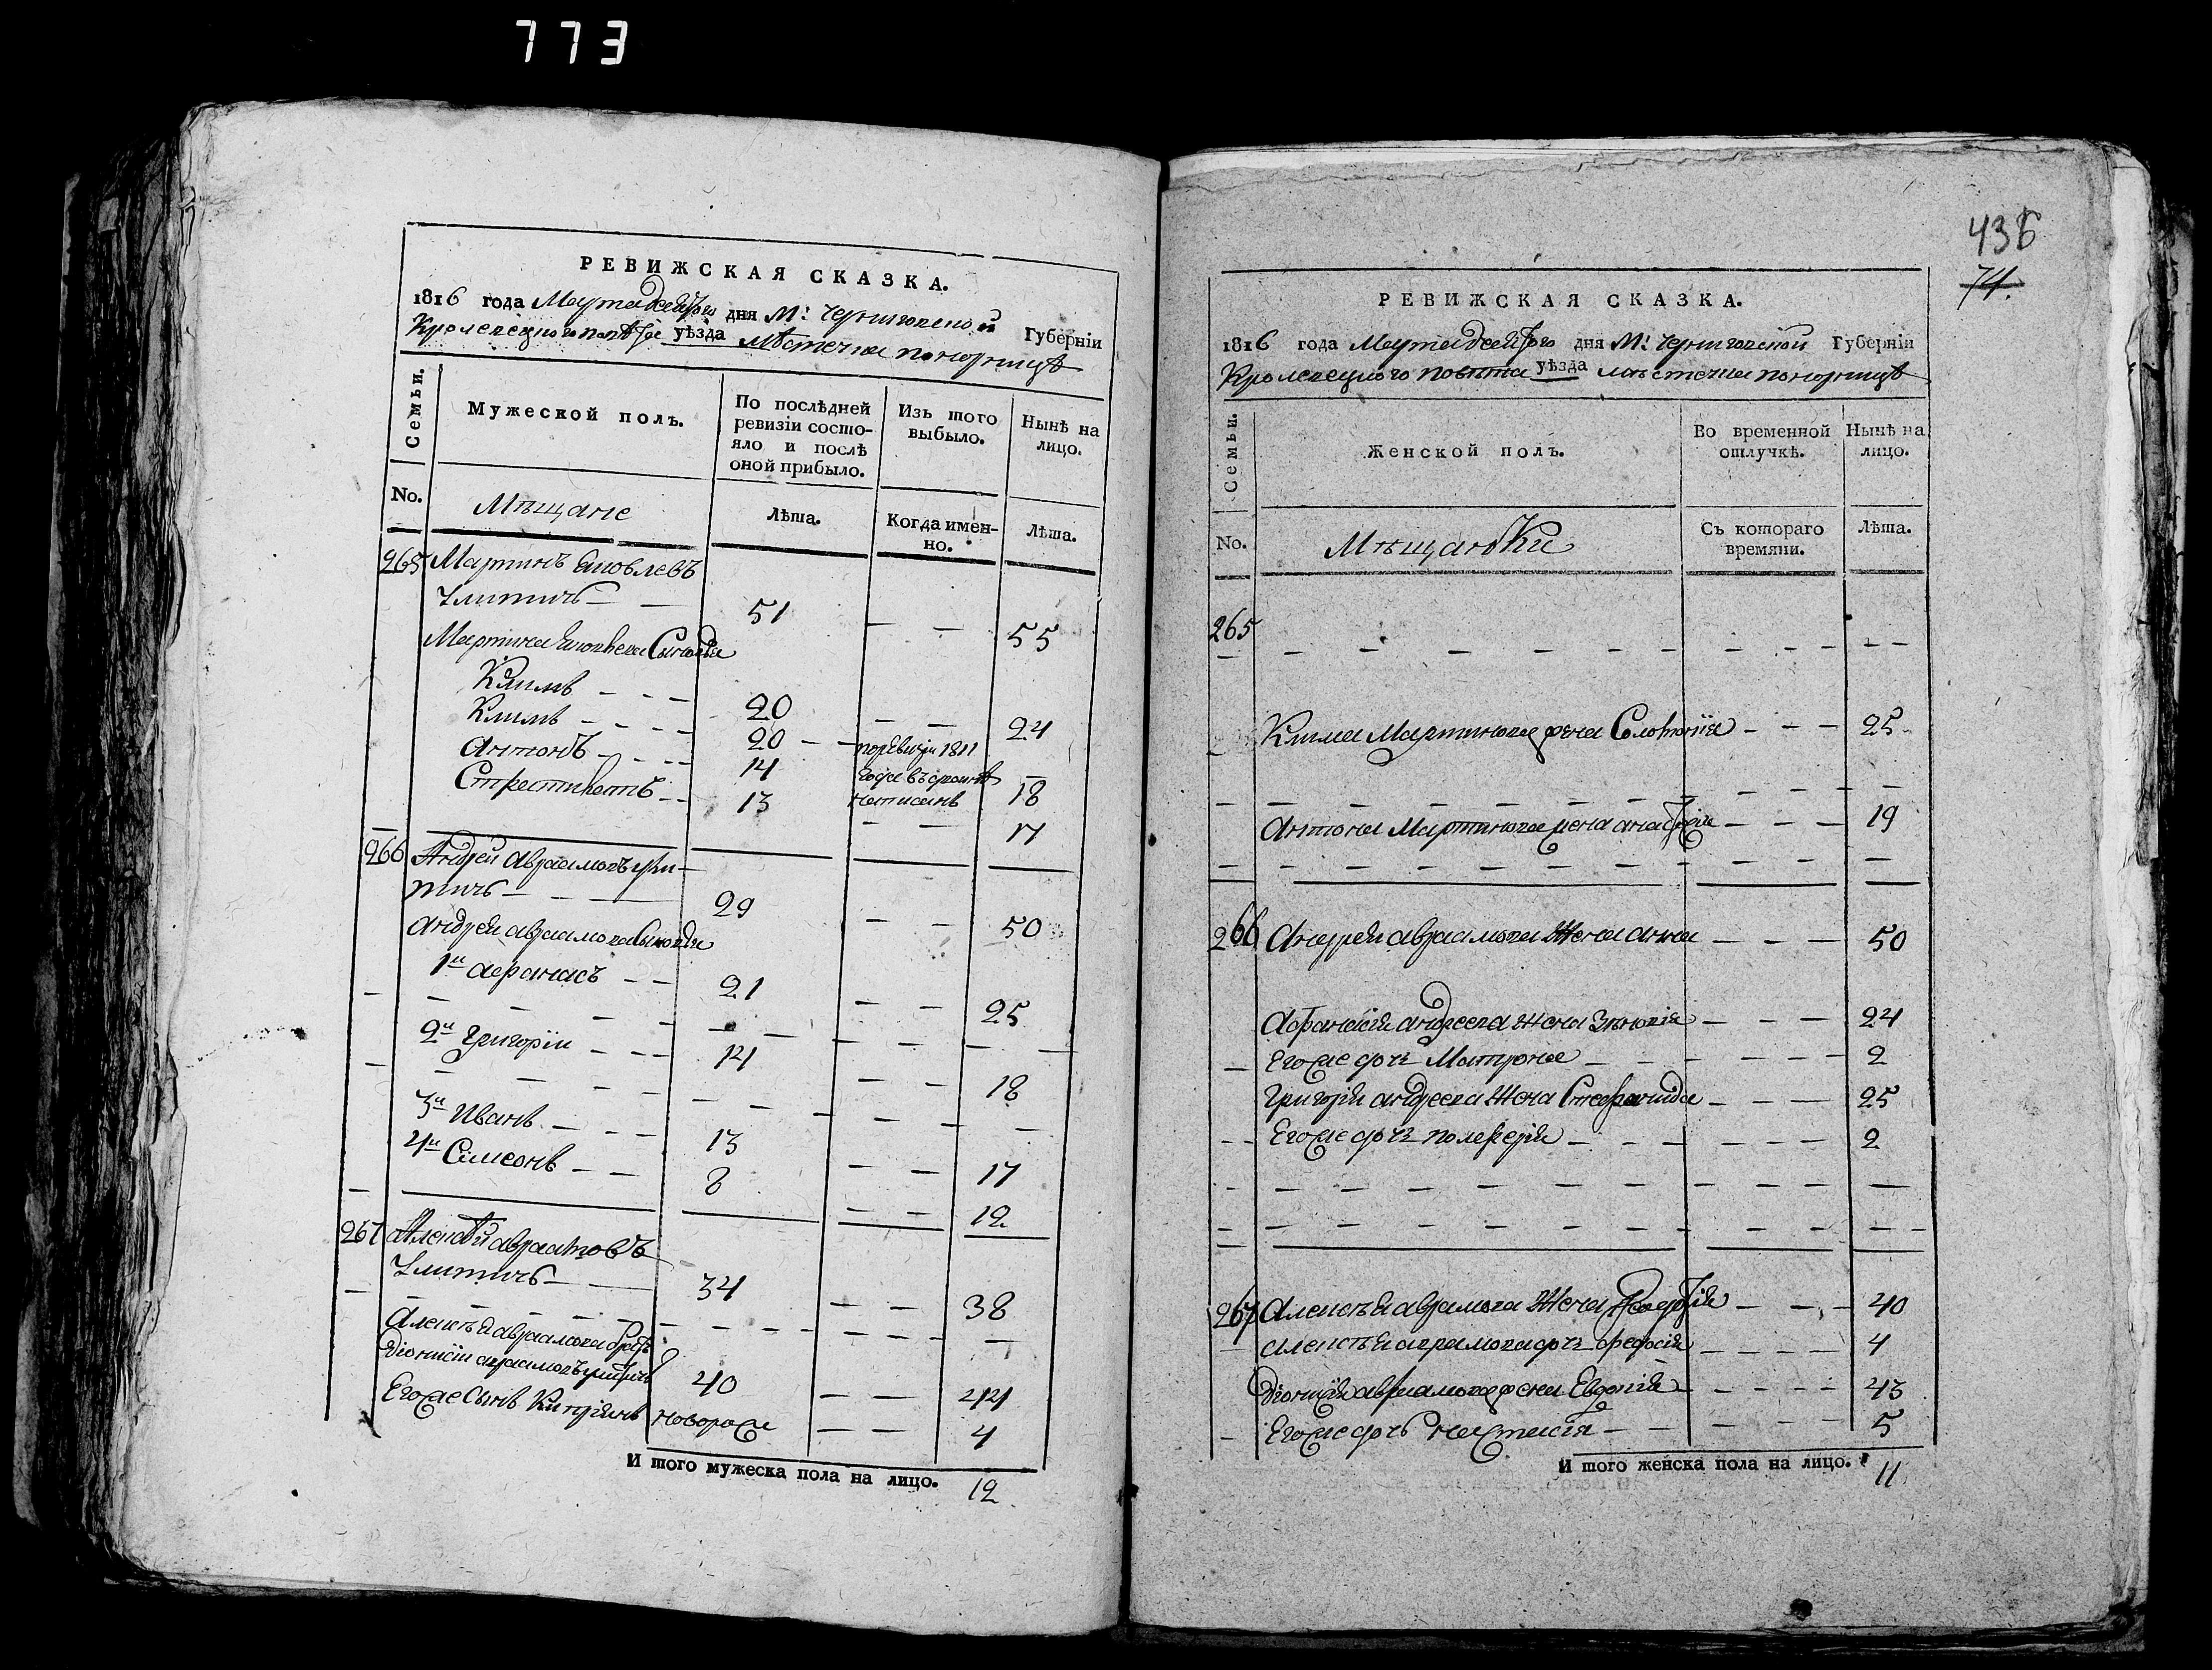 773
РЕВИЖСКАЯ СКАЗКА.
1816 года Марта дня М: Черниговской Губерніи
Кролевецкого повѣта уѣзда Мѣстечка Понорницѣ
Семьи.
Мужеской полъ.
По послѣдней ревизіи состояло и послѣ оной прибыло.
Изъ того выбыло.
Нынѣ на лицо.
No.
Мѣщане
Лѣта.
Когда именно.
Лѣта.
265 Мартинъ Яковлевъ
51 — — 55
Мартина Яковлева Сыновья
Климъ - - - 20 — — 24
Климъ - - - 20 — — по ревизіи 1811
Антонъ - - - 14 года въ написанъ 18
13 — — 17
266 Андрей Авраамовъ
29 — — 50
Андрея Авраамова Сыновья
1й Афанасъ - - 21 — — 25
2й Григорій - - - 14 — — 18
3й Иванъ - - - 13 — — 17
4й Симеонъ - - 8 — — 12
267 Алексѣй Авраамовъ
34 — — 38
Алексѣя Авраамова братъ
Діонисій Авраамовъ 40 — — 44
Его же Сынъ Кипріянъ новорож — — 4
И того мужеска пола на лицо. 12
436
74.
РЕВИЖСКАЯ СКАЗКА.
1816 года Марта дня М: Черниговской Губерніи
Кролевецкого повѣта уѣзда мѣстечка Понорницѣ
Семьи.
Женской полъ.
Во временной отлучкѣ.
Нынѣ на лицо.
No.
Мѣщанки
Съ котораго времяни.
Лѣта.
265
Клима Мартинова жена Соломонія - - - 25
Антона Мартинова жена - - - 19
266 Андрея Авраамова Жена Анна - - - 50
Афанасія Андреева Жена Зѣновія - - - 24
Его же дочь Матрона - - - 2
Григорія Андреева Жена Стефанида - - - 25
Его же дочь Пелагія - - - 2
267 Алексѣя Аврамова Жена - - - 40
Алексѣя Аврамова дочь Феодосія - - - 4
Діонисія Авраамова жена Евдокія - - - 43
Его же дочь Настасія - - - 5
И того женска пола на лицо. 11